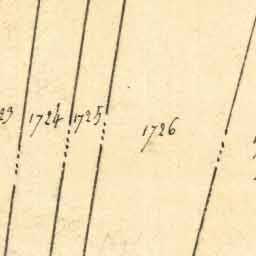 23 1724 1725 1726